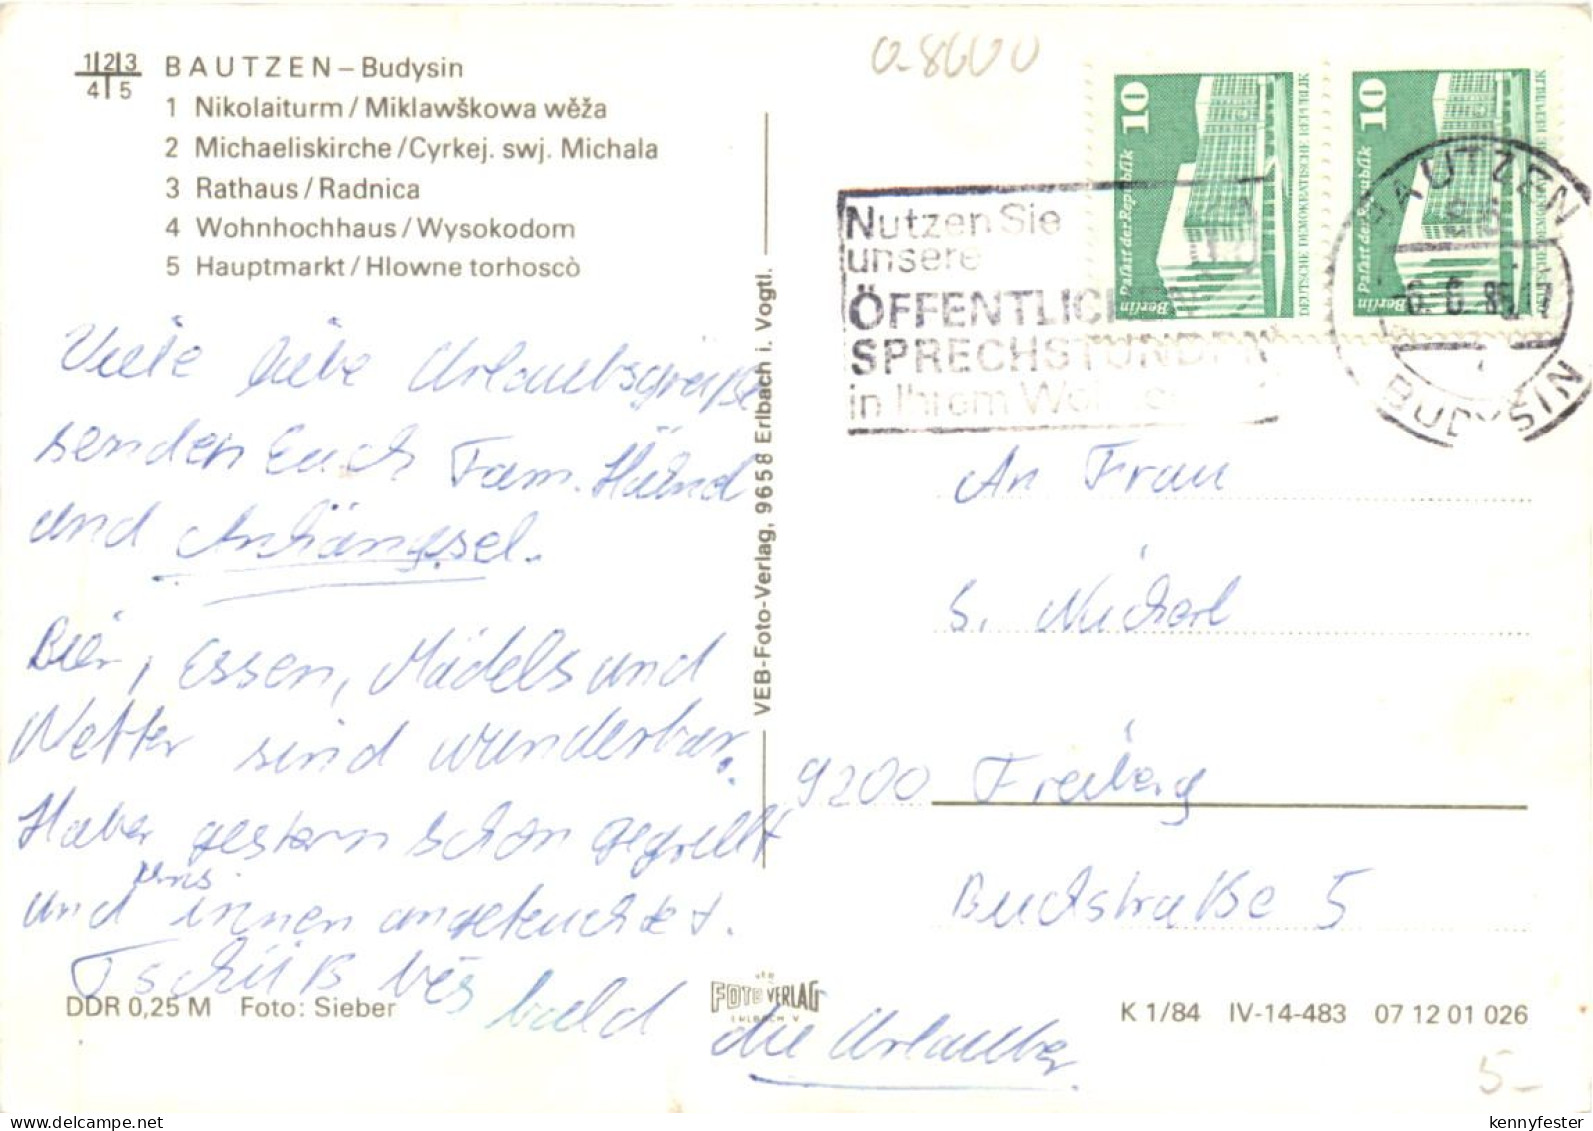 1 2 3
4 5
BAUTZEN – Budysin
1 Nikolaiturm / Miklawškowa wěža
2 Michaeliskirche / Cyrkej. swj. Michala
3 Rathaus / Radnica
4 Wohnhochhaus / Wysokodom
5 Hauptmarkt / Hłowne torhoscò
Viele liebe Urlaubsgrüße
senden Euch Fam.
und Anhängsel.
Bier, Essen, Mädels und
Wetter sind wunderbar.
Haben gestern schon gegrillt
uns
und innen angefeuchtet.
Tschüß bis bald
die Urlauber
DDR 0,25 M Foto: Sieber
VEB-Foto-Verlag, 9658 Erlbach i. Vogtl.
VEB
FOTO VERLAG
ERLBACH V.
10
Palast der Republik
Berlin
DEUTSCHE DEMOKRATISCHE REPUBLIK
10
Palast der Republik
Berlin
DEUTSCHE DEMOKRATISCHE REPUBLIK
Nutzen Sie
unsere
ÖFFENTLICHEN
SPRECHSTUNDEN
in Ihrem
BAUTZEN
BUDYSIN
An Frau
S.
9200 Freiberg
5
K 1/84 IV-14-483 07 12 01 026
5-
kennyfester